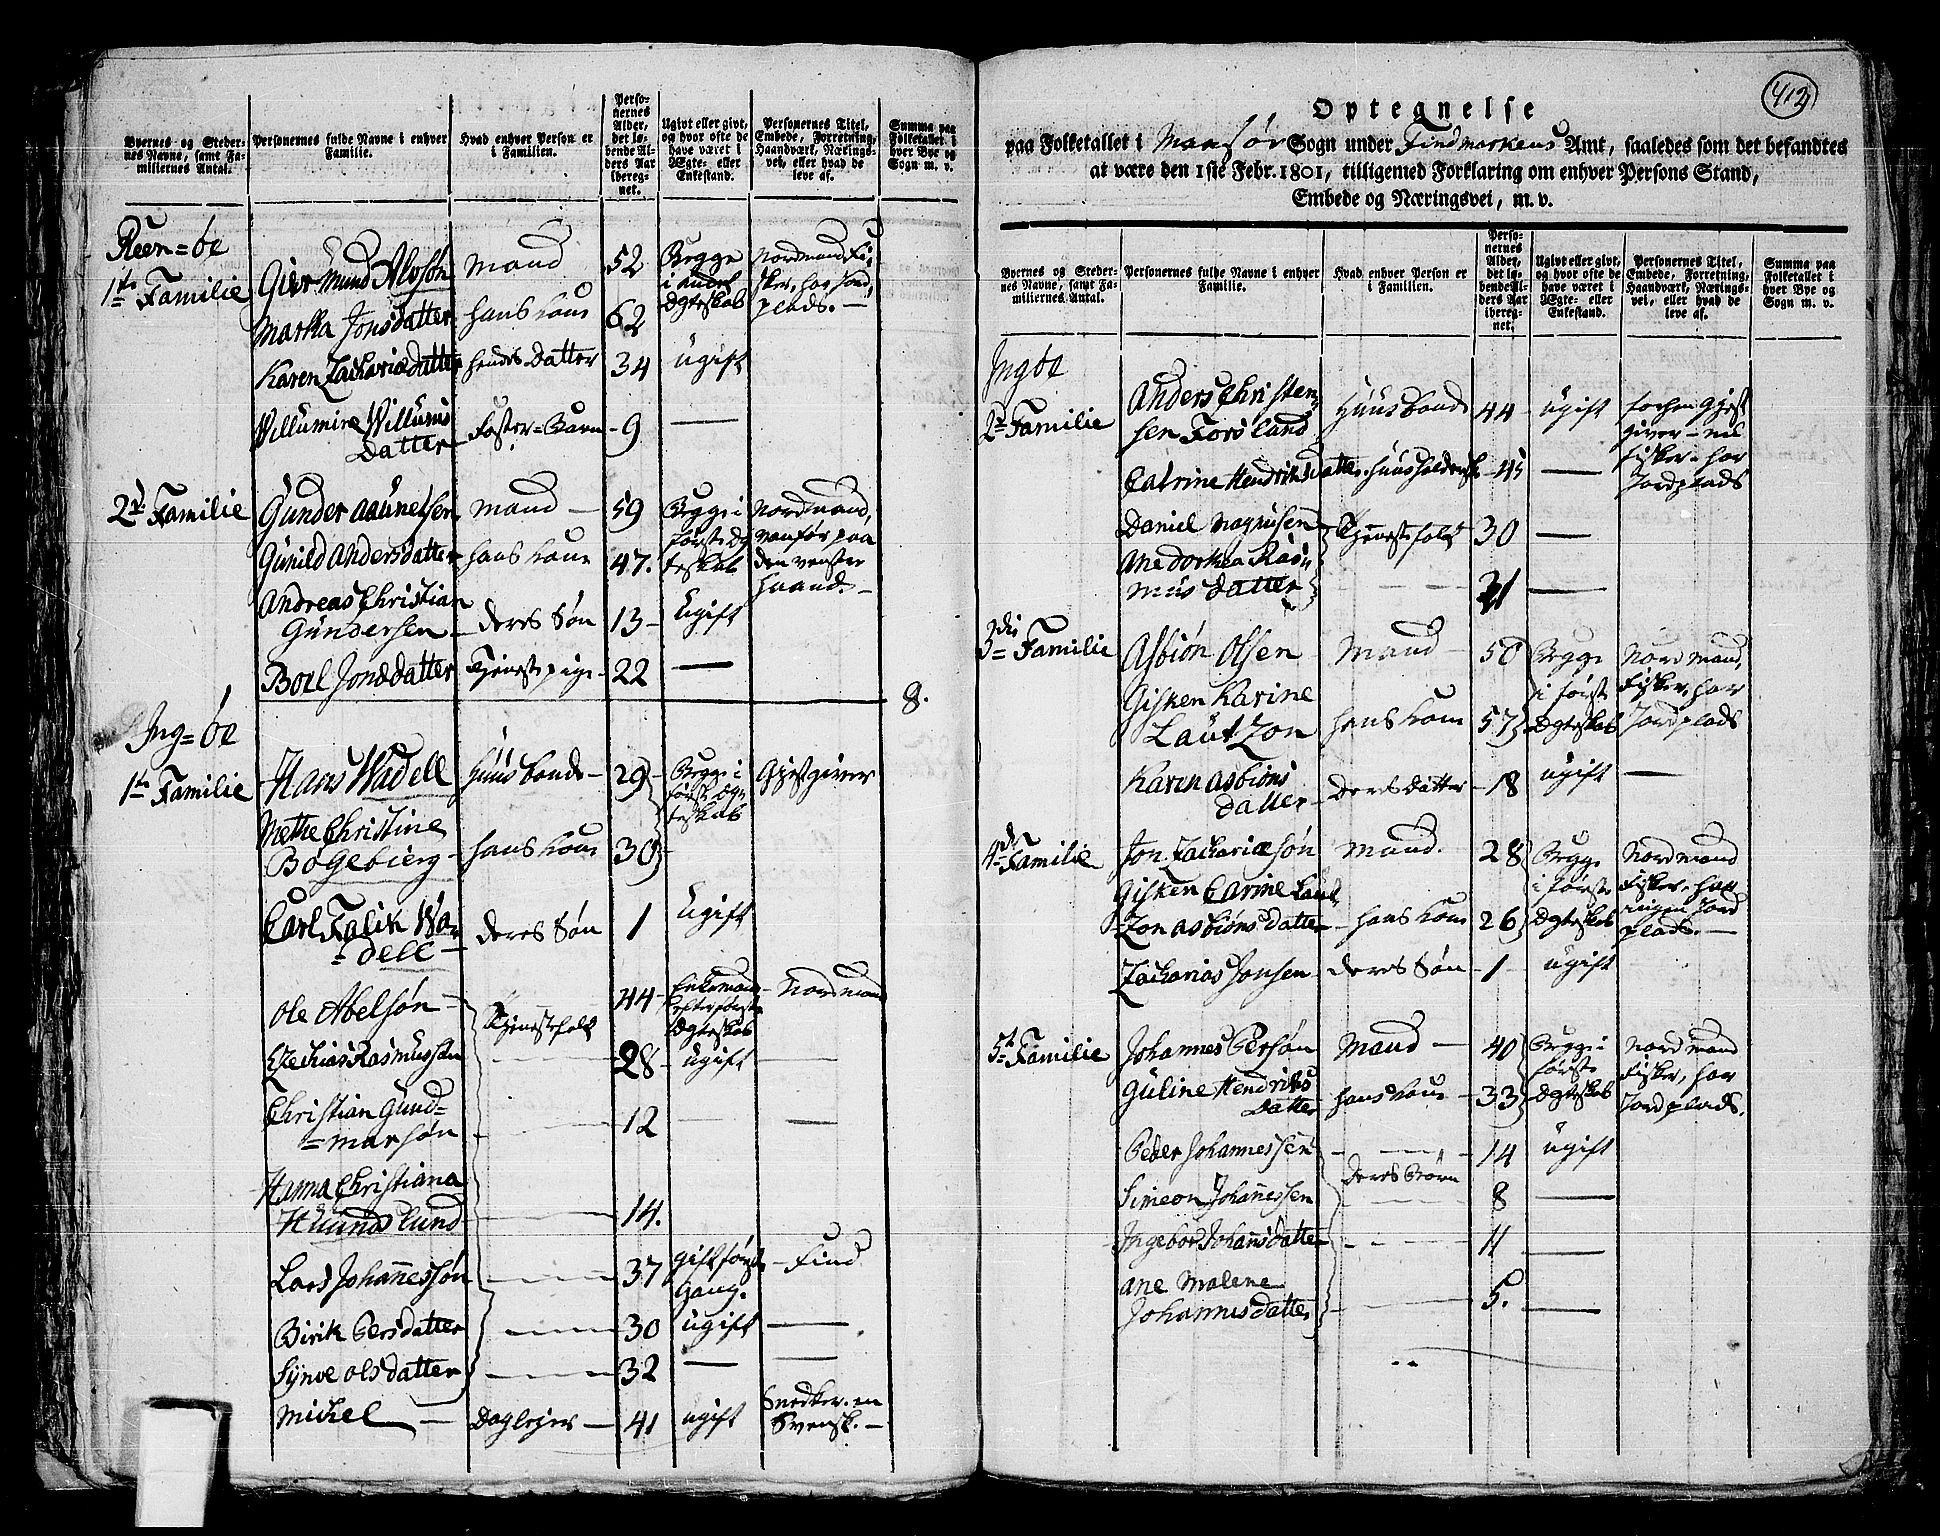 Byernes og Steder-
nes Navne, samt Fa-
miliernes Antal.
Personernes fulde Navne i enhver
Familie.
Hvad enhver Person er
i Familien.
Perso-
nernes
Alder,
det lø-
bende Al-
ders Aar
ibereg-
net.
Ugivt eller givt,
og hvor ofte de
have været i
Ægte- eller
Enkestand.
Personernes Titel,
Embede, Forretning,
Haandværk, Nærings-
vei, eller hvad de
leve af.
Summa paa
Folketallet i
hver Bye og
Sogn m. v.
Reen=öe
1te Familie
Giermund Alvsøn Mand 52 Begge i andet Ægteskab Nordmand, Fisker, har Jordplads.
Martha Jonsdatter hans Kone 62
Karen Zachariædatter hendes Datter 34 ugift
Willumine Willums Datter Foster=Barn 9 —
2den Familie
Gunder Aaunetsen Mand 59 Begge i første Ægteskab Nordmand, vanfør paa den venster Haand.
Gunild Andersdatter hans Kone 47.
Andreas Christian Gundersen deres Søn 13 Ugift
Boel Jonsdatter Tjenestepige 22 —
8.
Ing=öe
1te Familie
Hans Wadell Huusbonde 29 Begge i første Ægteskab Gjestgiver
Mette Christine Bogebierg hans Kone 30
Carl Falik Wadell deres Søn 1 Ugift
Ole Abelsøn Tjenestefolk 44 Enkemand efter første Ægteskab Nordmand
Ezechias Rasmussen 28 ugift —
Christian Gundmarsøn 12 — —
Hanna Christiana Huundslund 14.
Lars Johannessøn 37 gift første Gang. Find
Birik Persdatter 30 ugift —
Synve Olsdatter 32 — —
Michel Daglejer 41 ugift Snedker. en Svensk.
412
Optegnelse
paa Folketallet i Maasøe Sogn under Findmarkens Amt, saaledes som det befandtes
at være den 1ste Febr. 1801, tilligemed Forklaring om enhver Persons Stand,
Embede og Næringsvei, m. v.
Byernes og Steder-
nes Navne, samt Fa-
miliernes Antal.
Personernes fulde Navne i enhver
Familie.
Hvad enhver Person er
i Familien.
Perso-
nernes
Alder,
det lø-
bende Al-
ders Aar
ibereg-
net.
Ugivt eller givt,
og hvor ofte de
have været i
Ægte- eller
Enkestand.
Personernes Titel,
Embede, Forretning,
Haandværk, Nærings-
vei, eller hvad de
leve af.
Summa paa
Folketallet i
hver Bye og
Sogn m. v.
Ingöe
2den Familie
Anders Christensen Forslund Huusbonde 44 ugift forhen Gjestgiver — nu Fisker. har Jordplads
Catrine Hendriksdatter Huusholderske 45 —
Daniel Magnusen Tjenestefolk 30 —
Ane Dorthea Rasmus datter 21 —
3die Familie
Asbiøn Olsen Mand 50 Begge i første Ægteskab Nordmand, Fisker, har Jordplads
Gisken Karine Lautzon hans Kone 57
Karen Asbiøns datter deres datter 18 ugift —
4de Familie
Jon Zachariæsøn Mand. 28 Begge i første Ægteskab Nordmand Fisker, har ingen Jordplads.
Gisken Carine Lautzon Asbiønsdatter hans Kone 26
Zacharias Jonsen deres Søn 1 ugift
5te Familie
Johannes Persøn Mand 40 Begge i første Ægteskab Nordmand Fisker, har Jordplads.
Guline Hendriks Datter hans Kone 33
Peder Johannessen deres Børn 14 ugift
Simeon Johannessen 8 —
Ingebor Johansdatter 11 —
Ane Malene Johannisdatter 5. —